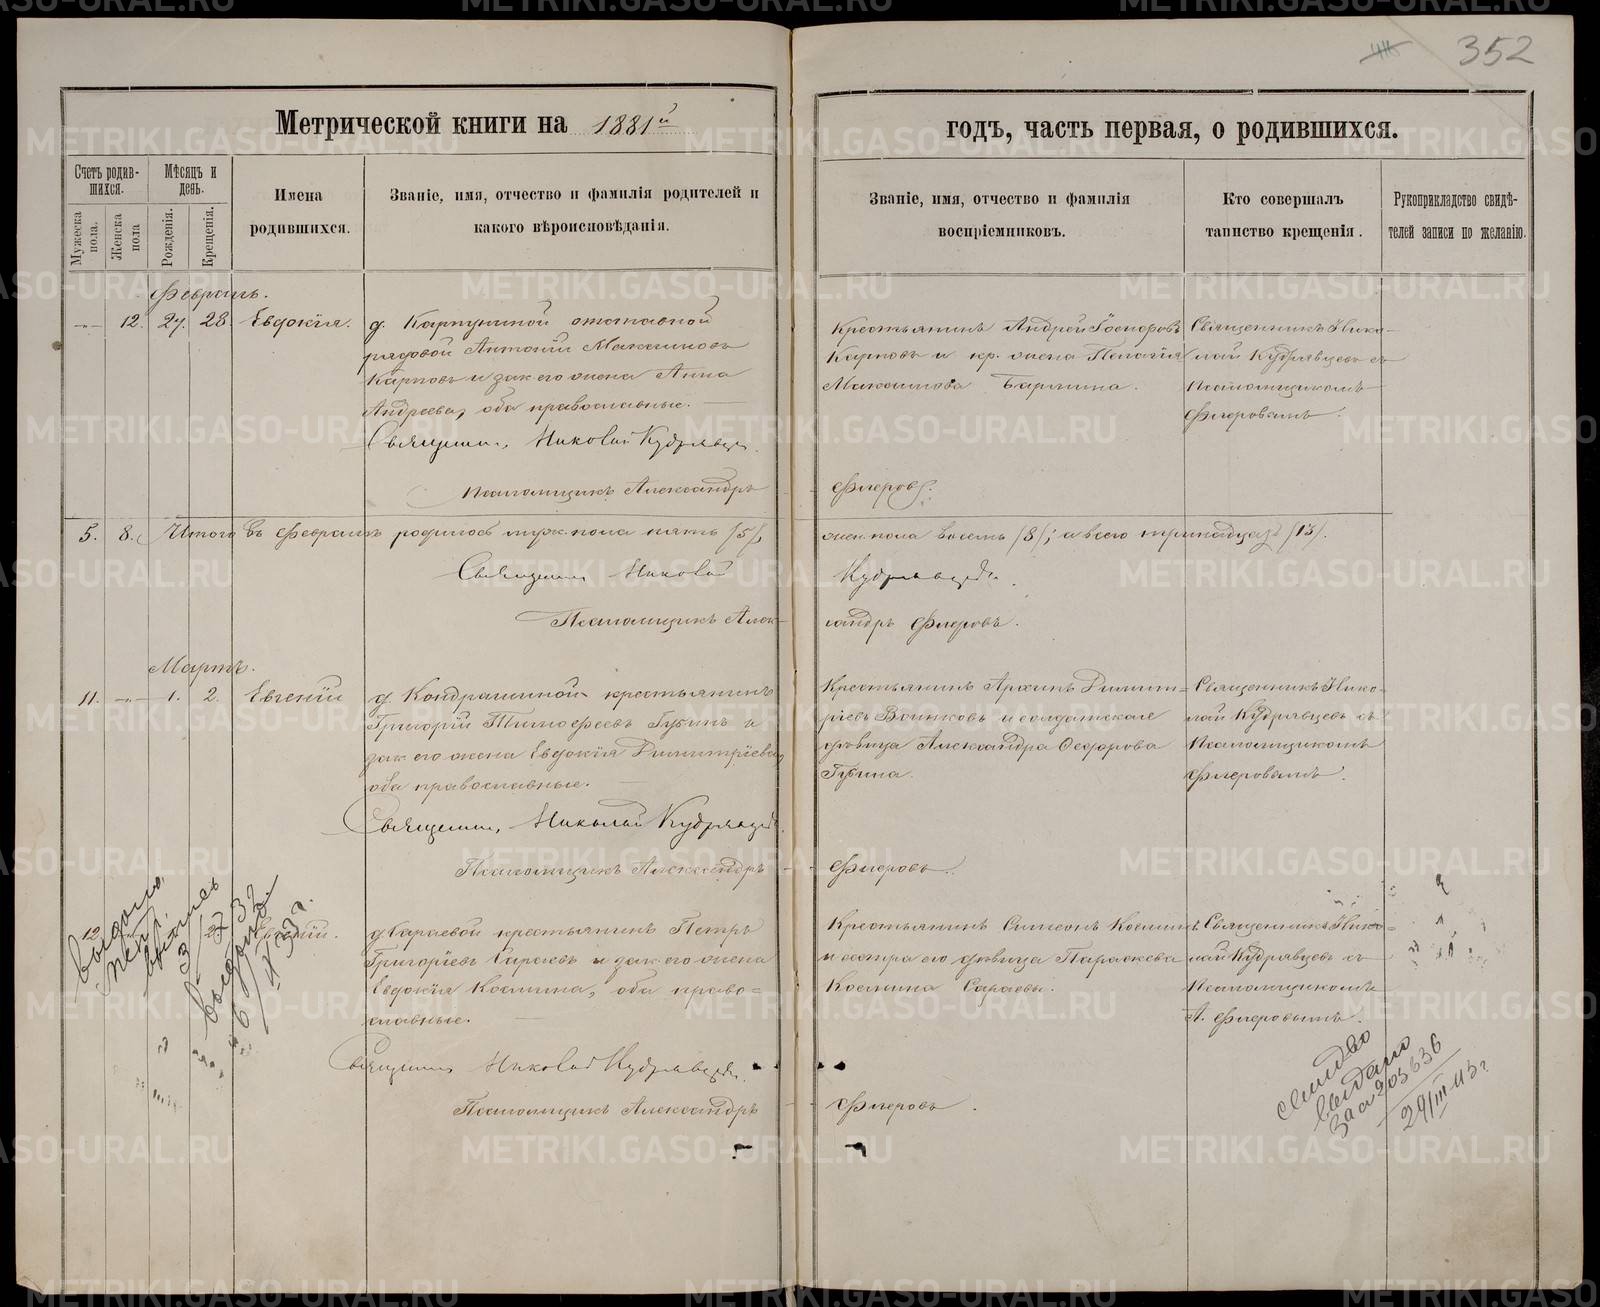 352
Метрической книги на 1881й
годъ, часть первая, о родившихся.
Счетъ родив-
шихся.
Мужеска
пола.
Женска
пола
Мѣсяцъ и
день.
Рожденія.
Крещенія.
Имена
родившихся.
Званіе, имя, отчество и фамилія родителей и
какого вѣроисповѣданія.
Званіе, имя, отчество и фамилія
воспріемниковъ.
Кто совершалъ
таинство крещенія.
Рукоприкладство свидѣ-
телей записи по желанію.
Февраль.
12. 27. 28. Евдокія.
д. Карпушиной отставной
рядовой Антоній Максимовъ
Карповъ и зак. его жена Анна
Андреева, оба православные.
Священникъ Николай Кудрявцевъ.
Псаломщикъ Александръ
Крестьянинъ Андрей Іосифовъ
Карповъ и кр. жена Пелагія
Максимова
Священникъ Нико-
лай Кудрявцевъ съ
Псаломщикомъ
Флеровымъ.
Флеровъ.
5. 8. Итого въ Февралѣ родилось муж. пола пять /5/,
жен. пола восемь /8/; а всего тринадцать /13/.
Священникъ Николай
Кудрявцевъ.
Псаломщикъ Алек-
сандръ Флеровъ.
Мартъ.
11. 1. 2. Евгеній
д. Кондрашиной крестьянинъ
Григорій Тимофеевъ Губинъ и
зак. его жена Евдокія Димитріева,
оба православные.
Священникъ Николай Кудрявцевъ.
Псаломщикъ Александръ
Крестьянинъ Архипъ Димит-
ріевъ Воинковъ и солдатская
дѣвица Александра Феодорова
Губина.
Священникъ Нико-
лай Кудрявцевъ съ
Псаломщикомъ
Флеровымъ.
Флеровъ.
12.
д. Сараевой крестьянинъ Петръ
Григоріевъ Сараевъ и зак. его жена
Евдокія Космина, оба право-
славные.
Священникъ Николай Кудрявцевъ.
Псаломщикъ Александръ
Крестьянинъ Симеонъ Косминъ
и сестра его дѣвица Параскева
Космина Сараевы.
Священникъ Нико-
лай Кудрявцевъ съ
Псаломщикомъ
А. Флеровымъ.
Флеровъ.
выдано
выдано
за № 203636
29/III 43 г
METRIKI.GASO-URAL.RU